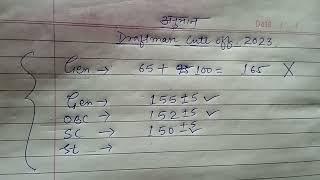 अनुमान
Draftman Cutt off 2023.
Gen → 65 + 100 = 165 X
Gen → 155 ± 5 ✓
OBC → 152 ± 5 ✓
SC → 150 ± 5 ✓
St →